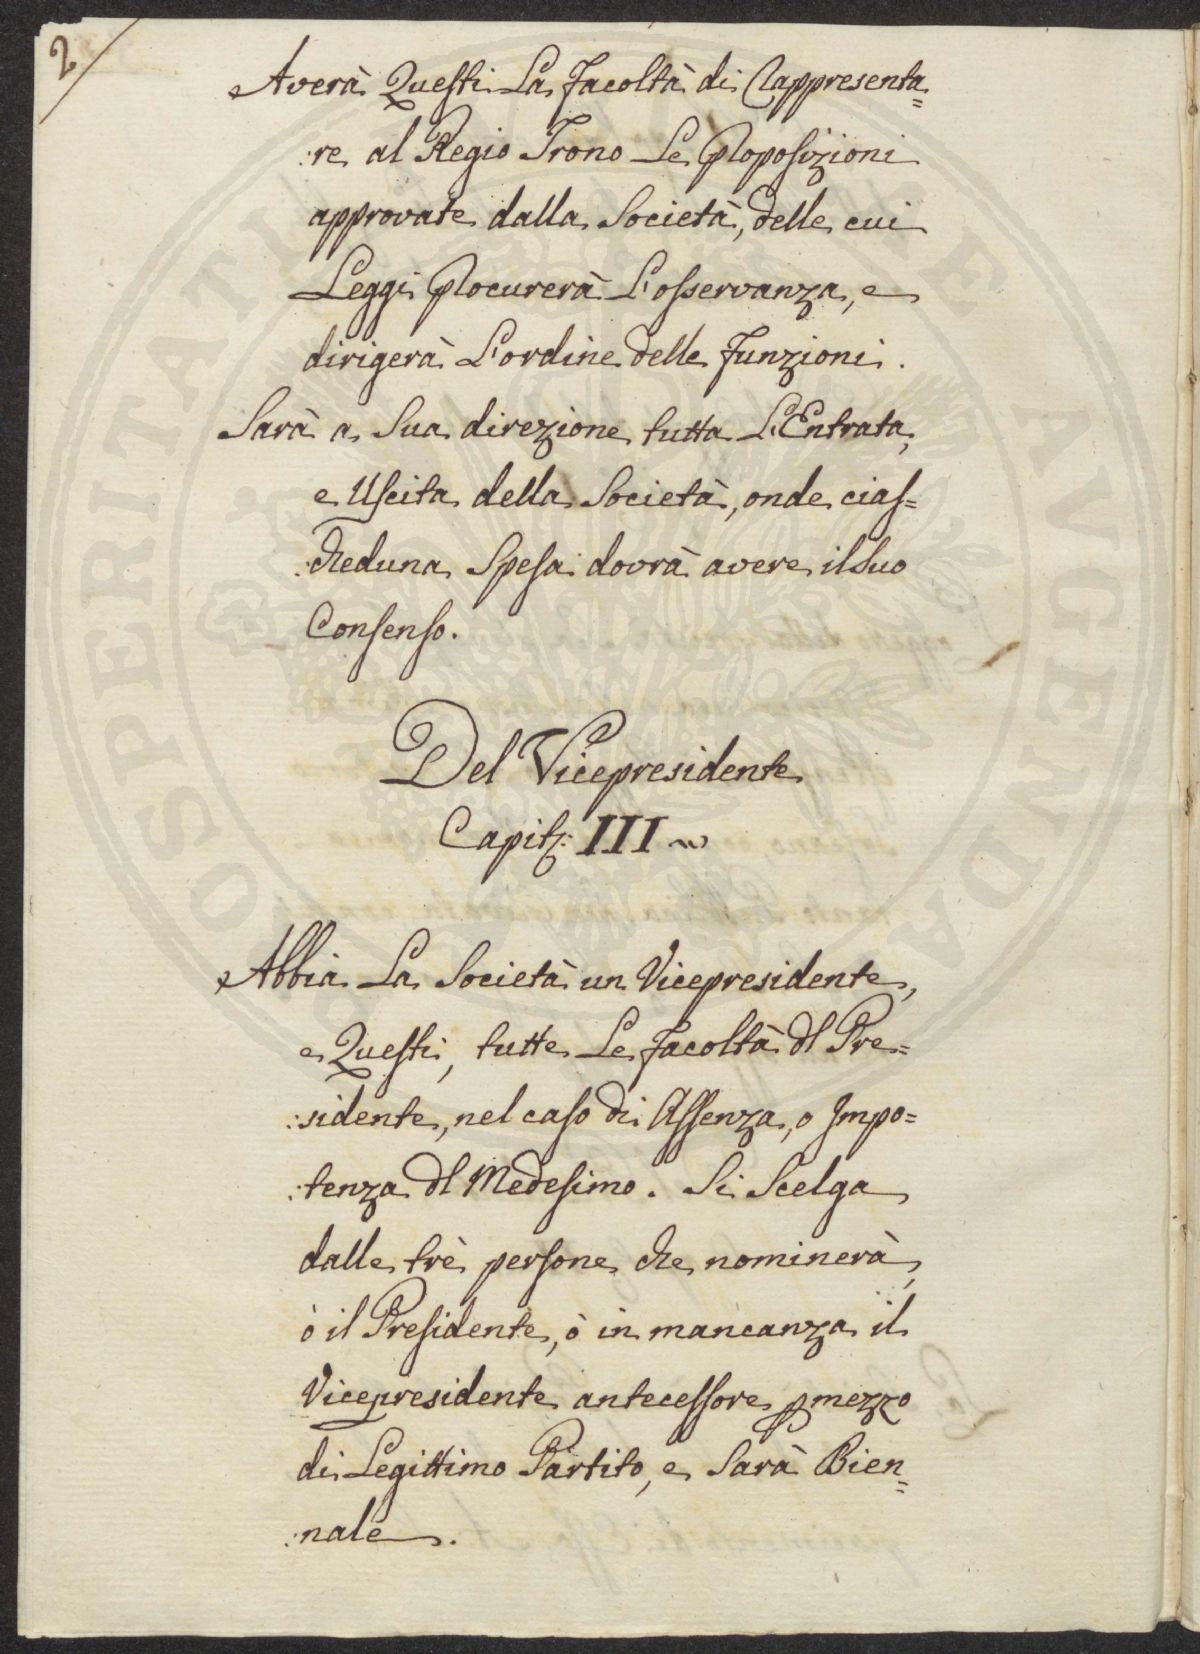 2
Averà Questi La Facoltà di Rappresenta=
:re al Regio Trono Le Proposizioni
approvate dalla Società, delle cui
Leggi Procurerà L'osservanza, e
dirigerà L'ordine delle Funzioni.
Sarà a Sua direzione tutta L'Entrata,
e Uscita della Società, onde cias=
:cheduna Spesa dovrà avere il Suo
Consenso.
Del Vicepresidente
Capit: III
Abbia La Società un Vicepresidente,
e Questi, tutte Le Facoltà dl Pre=
:sidente, nel caso di Assenza, o Impo=
:tenza dl Medesimo. Si Scelga
dalle trè persone che nominerà,
ò il Presidente, ò in mancanza il
Vicepresidente antecessore p mezzo
di Legittimo Partito, e Sarà Bien=
:nale.
PROSPERITATI PUBLICAE AVGENDAE